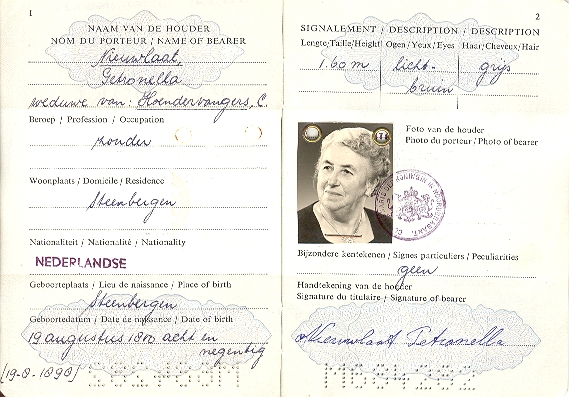 1
NAAM VAN DE HOUDER
NOM DU PORTEUR / NAME OF BEARER
Nieuwlaat,
Petronella
weduwe van: Hoendervangers, C.
Beroep / Profession / Occupation
zonder
Woonplaats / Domicile / Residence
Steenbergen
Nationaliteit / Nationalité / Nationality
NEDERLANDSE
Geboorteplaats / Lieu de naissance / Place of birth
Steenbergen
Geboortedatum / Date de naissance / Date of birth
19 augustus 1800 acht en
negentig
[19-8-1898]
2
SIGNALEMENT / DESCRIPTION / DESCRIPTION
Lengte/Taille/Height Ogen/Yeux/Eyes Haar/Cheveux/Hair
1.60 m licht- grijs
bruin
Foto van de houder
Photo du porteur / Photo of bearer
Bijzondere kentekenen / Signes particuliers / Peculiarities
geen
Handtekening van de houder
Signature du titulaire / Signature of bearer
Nieuwlaat Petronella